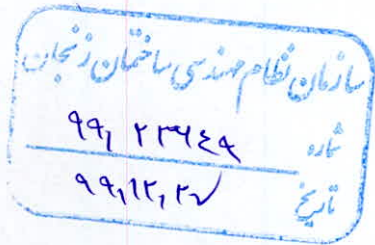 سازمان نظام مهندسی ساختمان زنجان
شماره ۹۹٫ ۲۳۶۴۹
تاریخ ۹۹٫۱۲٫۲۷